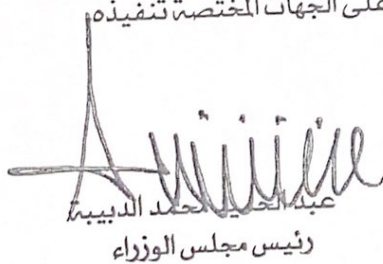 على الجهات المختصة تنفيذه
عبد الحميد محمد الدبيبة
رئيس مجلس الوزراء